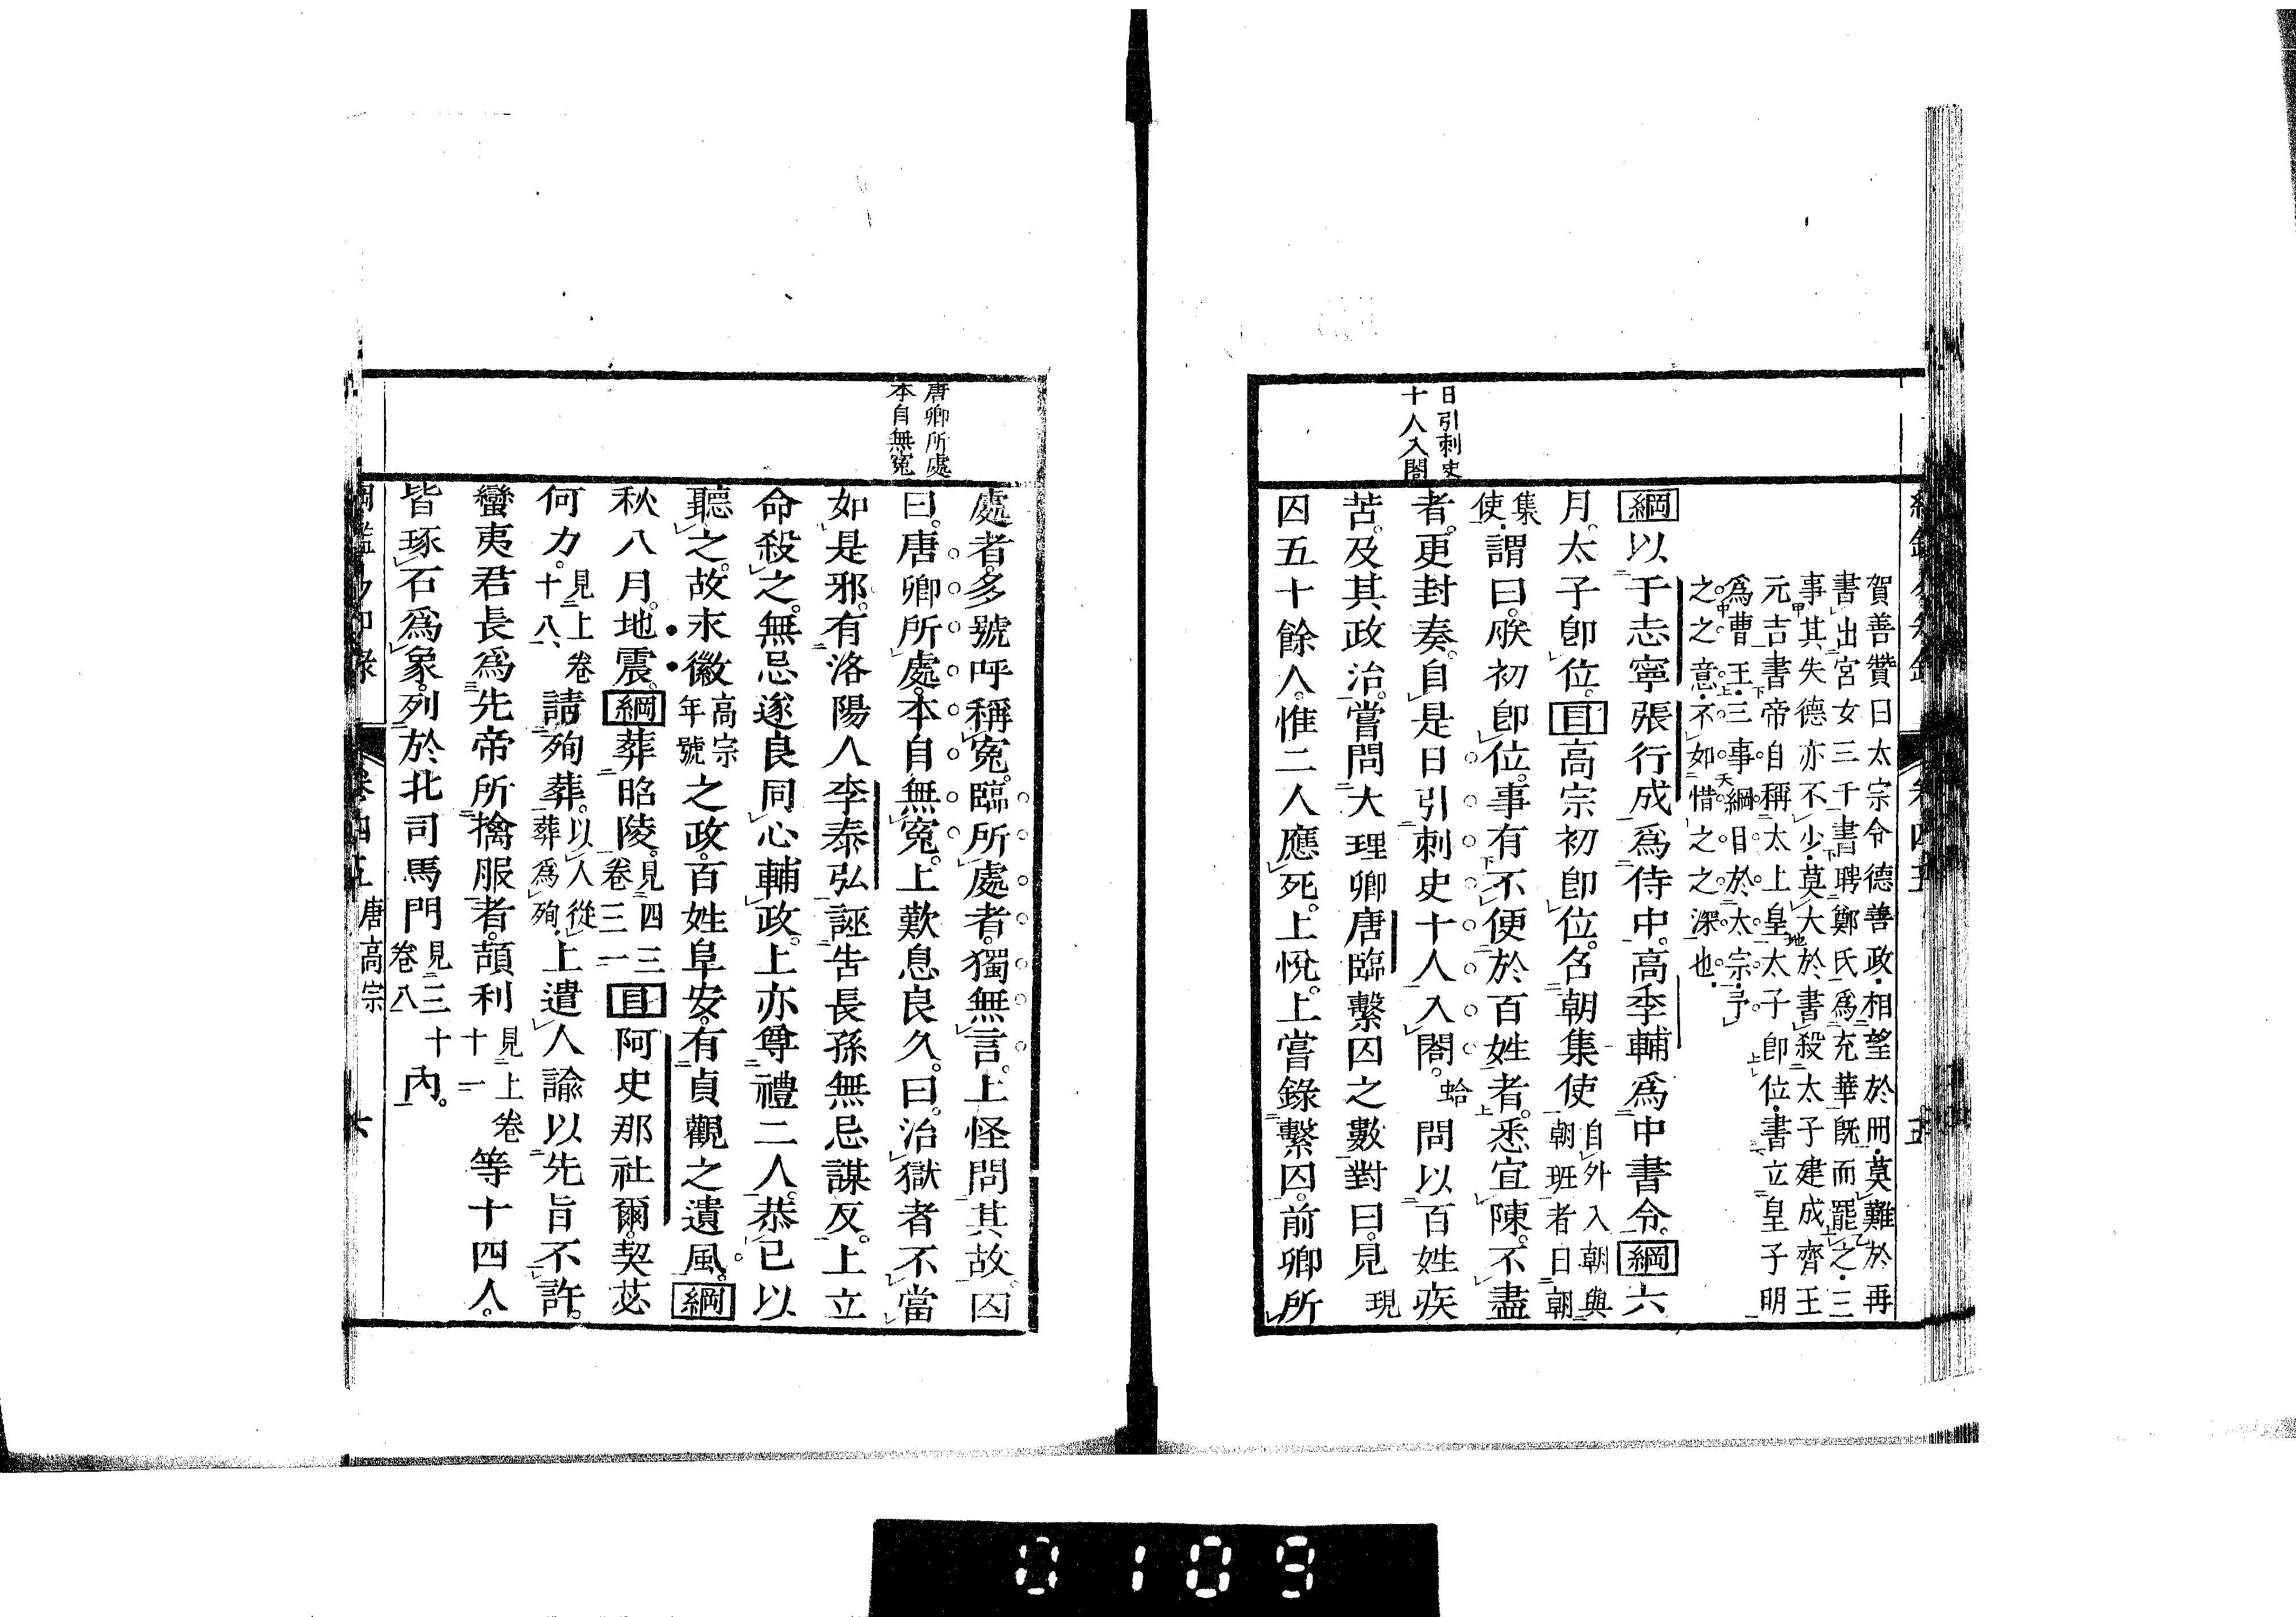 日引刺史
十人入閤
賀善贊曰太宗令德善政相望於冊莫難於再
書出宮女三千書聘鄭氏爲充華旣而罷之三
事其失德亦不少莫大於書殺太子建成齊王
元吉書帝自稱太上皇太子卽位書立皇子明
爲曹王三事綱目於太宗予
之之意不如惜之之深也
綱以于志寧張行成爲侍中。高季輔爲中書令。綱六
月。太子卽位。目高宗初卽位。召朝集使自外入朝與朝班者曰朝
集使謂曰。朕初卽位。事有不便於百姓者。悉宜陳。不盡
者。更封奏。自是日引刺史十人入閤。蛤問以百姓疾
苦。及其政治。嘗問大理卿唐臨繫囚之數。對曰。見現
囚五十餘人。惟二人應死。上悅。上嘗錄繫囚。前卿所
唐卿所處
本自無冤
處者。多號呼稱冤。臨所處者。獨無言。上怪問其故。囚
曰。唐卿所處。本自無冤。上歎息良久。曰。治獄者不當
如是邪。有洛陽人李泰弘誣告長孫無忌謀反。上立
命殺之。無忌遂良同心輔政。上亦尊禮二人。恭已以
聽之。故永徽高宗年號之政。百姓阜安。有貞觀之遺風。綱
秋八月。地震。綱葬昭陵。見四三卷三一目阿史那社爾。契苾
何力。見上卷十八請殉葬。以人從葬爲殉上遣人諭以先旨不許。
蠻夷君長爲先帝所擒服者。頡利見上卷十一等十四人。
皆琢石爲象。列於北司馬門見三十卷八內。
唐高宗